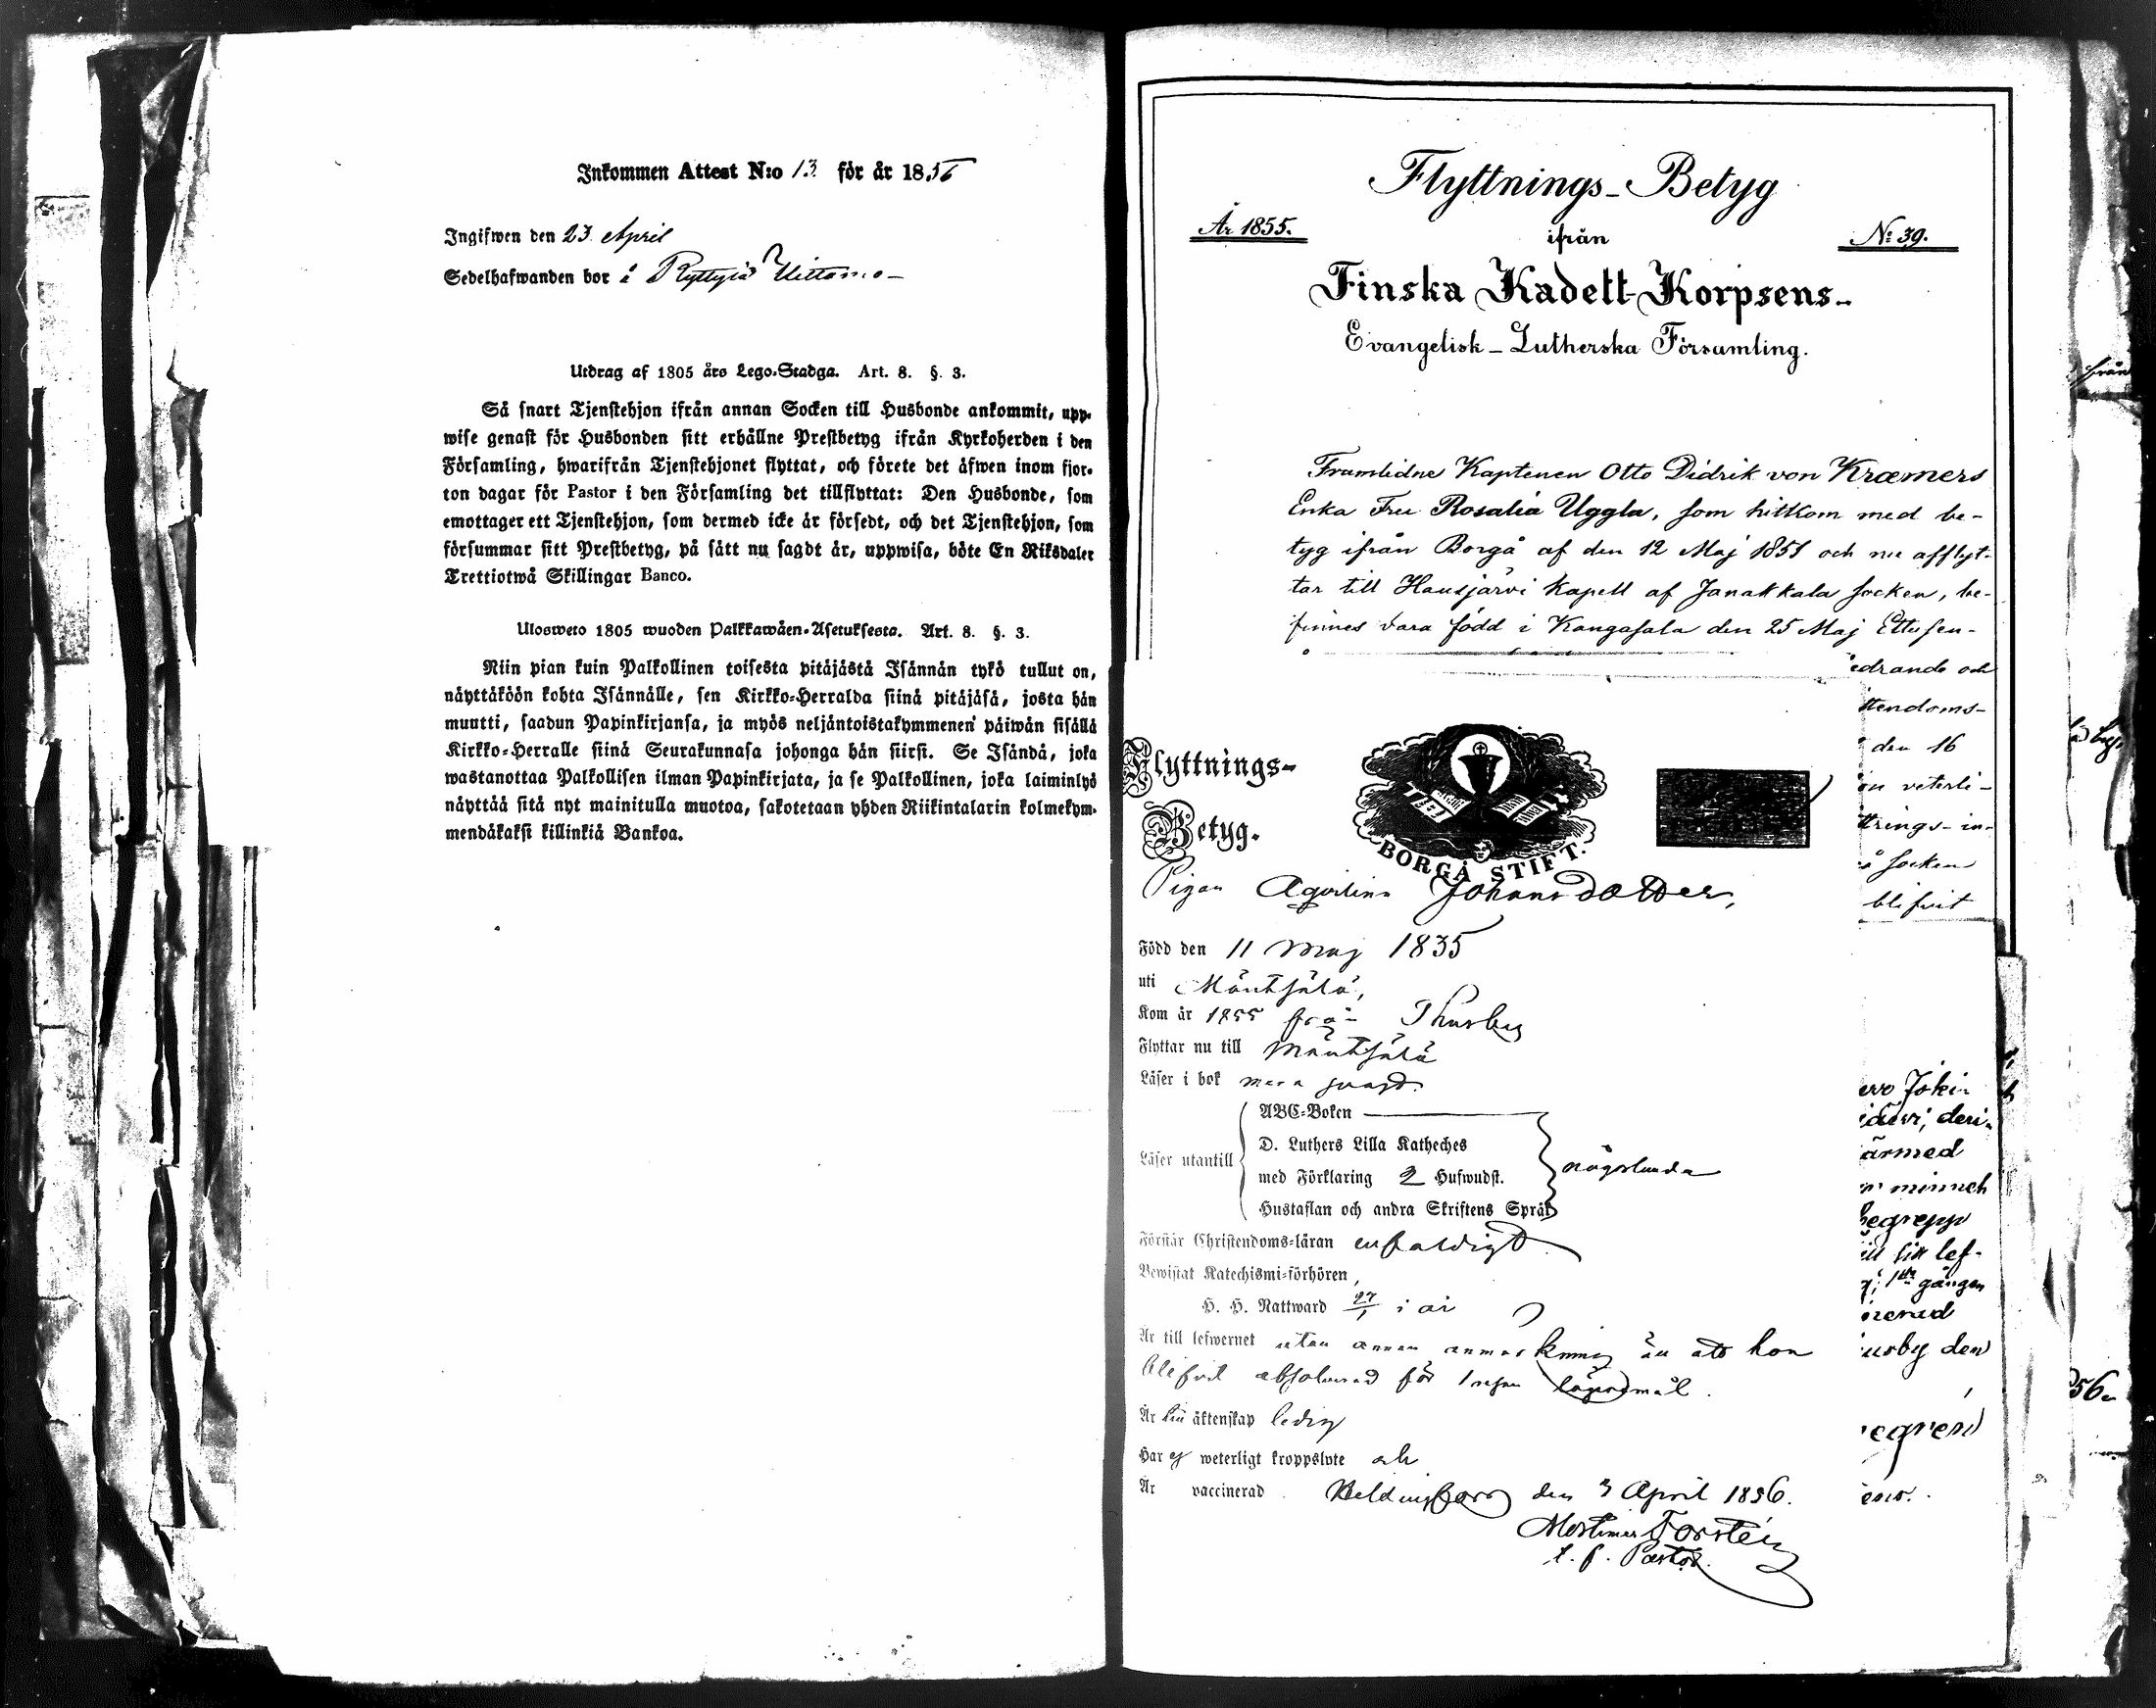 Inkommen Attest N:o 13 för år 1856
Ingifwen den 23 April
Sedelhafwanden bor å
Utdrag af 1805 års Lego-Stadga. Art. 8. §. 3.
Så snart Tjenstehjon ifrån annan Socken till Husbonde ankommit, upp-
wise genast för Husbonden sitt erhållne Prestbetyg ifrån Kyrkoherden i den
Församling, hwarifrån Tjenstehjonet flyttat, och förete det äfwen inom fjor-
ton dagar för Pastor i den Församling det tillflyttat: Den Husbonde, som
emottager ett Tjenstehjon, som dermed icke är försedt, och det Tjenstehjon, som
försummar sitt Prestbetyg, på sätt nu sagdt är, uppwisa, böte En Riksdaler
Trettiotwå Skillingar Banco.
Ulosweto 1805 wuoden Palkkawäen-Asetuksesta. Art. 8. §. 3.
Niin pian kuin Palkollinen toisesta pitäjästä Isännän tykö tullut on,
näyttäköön kohta Isännälle, sen Kirkko-Herralda siinä pitäjäsä, josta hän
muutti, saadun Papinkirjansa, ja myös neljäntoistakymmenen päiwän sisällä
Kirkko-Herralle siinä Seurakunnasa johonga hän siirsi. Se Isändä, joka
wastanottaa Palkollisen ilman Papinkirjata, ja se Palkollinen, joka laiminlyö
näyttää sitä nyt mainitulla muotoa, sakotetaan yhden Riikintalarin kolmekym-
mendäkaksi killinkiä Bankoa.
Flyttnings-Betyg
År 1855.
ifrån
N:o 39.
Finska Kadett-Korpsens
Evangelisk-Lutherska Församling.
Framlidne Kaptenen Otto Didrik von Kræmers
Enka Fru Rosalia Uggla, som hitkom med be-
tyg ifrån Borgå af den 12 Maj 1851 och nu afflyt-
tar till Hausjärvi Kapell af Janakkala socken, be-
finnes vara född i Kangasala den 25 Maj Ettusen-
drande och
stendoms-
den 16
en veterli-
ttrings-in-
socken
blifvit
Flyttnings-
Betyg.
BORGÅ STIFT.
Pigan Johansdotter,
Född den 11 Maj 1835
uti Mäntsälä,
Kom år 1855 från Thusby
Flyttar nu till Mäntsälä
Läser i bok svagt.
Läser utantill
ABC-Boken
D. Luthers Lilla Katheches
med Förklaring 2 Hufwudst.
Hustaflan och andra Skriftens Språk
någorlunda
Förstår Christendoms-läran enfaldigt
Bewistat Katechismi-förhören,
H. H. Nattward 27/1 i år
Är till lefwernet utan annan anmärkning än att hon
blifvit absolverad för lägersmål.
Är till äktenskap ledig
Har ej weterligt kroppslyte och
Är vaccinerad. Helsingfors den 3 April 1856.
Mortimer Forstén
t. f. Pastor.
deri-
ärmed
minnet
begrepp
till sitt lef-
1sta gången
usby den
från
56.